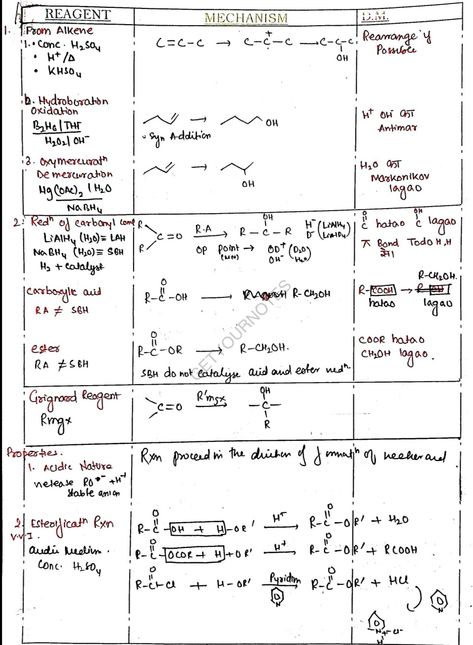 REAGENT
MECHANISM
D.M.
1. From Alkene
1. • Conc. H2SO4
• H+/Δ
• KHSO4
C=C-C → C-C-C → C-C-C
+
OH
Rearrange if
Possible
b. Hydroboration
Oxidation
B2H6/THF
H2O2/OH-
OH
• Syn Addition
H+ OH- का
Antimar
3. Oxymercuratn
Demercuration
Hg(OAc)2/H2O
NaBH4
OH
H2O का
Markonikov
lagao
2. Redn of carbonyl
LiAlH4 (H2O) ≡ LAH
NaBH4 (H2O) ≡ SBH
H2 + Catalyst
R
R
C=O
R.A
OH
R-C-R
H- (LiAlH4)
D- (LiAlD4)
OP
OD+ (D2O)
OH- (H2O)
C hatao C lagao
O
OH
π Bond Todo H, H
Carboxylic acid
RA ≠ SBH
O
R-C-OH → R-CH2OH
R-COOH →
R-CH2OH
hatao
lagao
ester
RA ≠ SBH
O
R-C-OR → R-CH2OH.
SBH do not catalyse acid and ester redn.
COOR hatao
CH2OH lagao.
Grignard Reagent
Rmgx
C=O
R'mgx
OH
-C-
R
GETYOURNOTES
Properties.
1. Acidic Nature
release RO- + H+
stable anion
Rxn proceed in the direction of formatn of weaker acid
2. Esterificatn Rxn
V.V.I.
Acidic Medium.
Conc. H2SO4
O
R-C-OH + H-OR'
H+
O
R-C-OR' + H2O
O
R-C-OCOR + H+OR'
H+
O
R-C-OR' + RCOOH
O
R-C-Cl + H-OR'
Pyridine
N
O
R-C-OR' + HCl
N
N+ Cl-
H